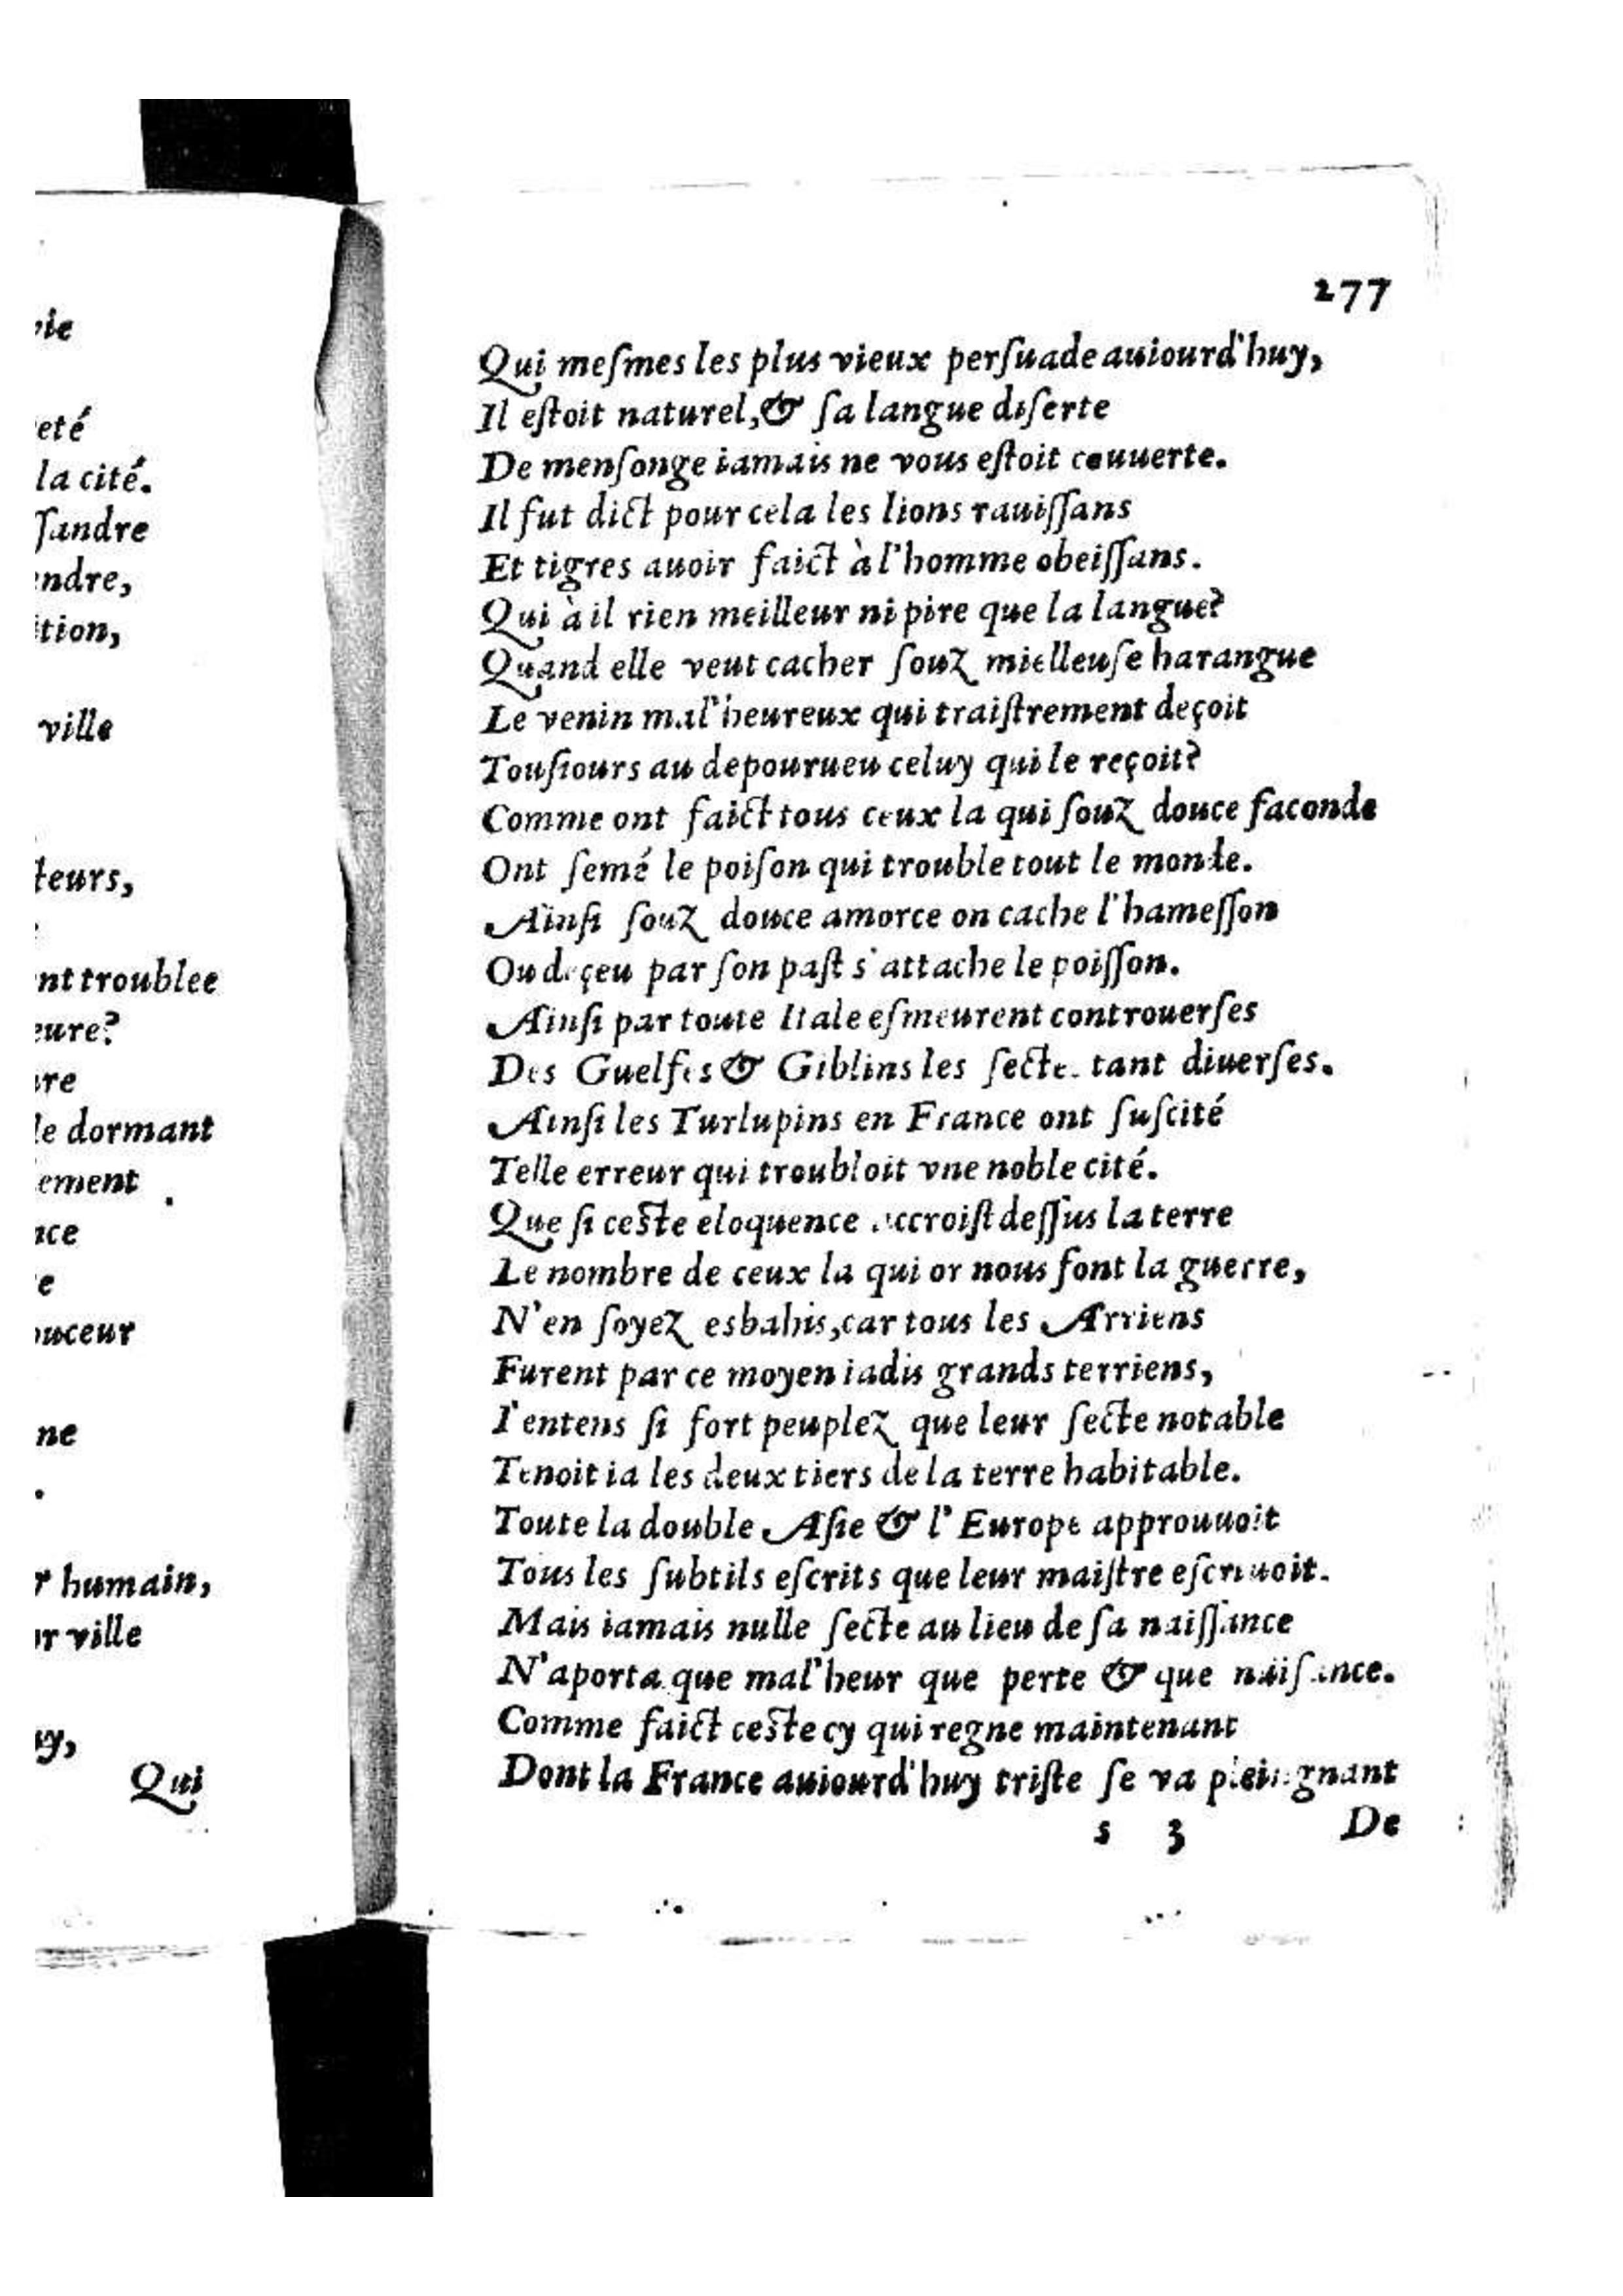 vie
eté
la cité.
ſſandre
endre,
ition,
ville
teurs,
nt troublee
eure?
dormant
ement
nce
ouceur
ne
humain,
ville
Qui
277
Qui meſmes les plus vieux perſuade auiourd'huy,
Il eſtoit naturel, & ſa langue diſerte
De menſonge iamais ne vous eſtoit couuerte.
Il fut dict pour cela les lions rauiſſans
Et tigres auoir faict à l'homme obeiſſans.
Qui à il rien meilleur ni pire que la langue?
Quand elle veut cacher ſouz mielleuſe harangue
Le venin mal'heureux qui traiſtrement deçoit
Touſiours au depourueu celuy qui le reçoit?
Comme ont faict tous ceux la qui ſouz douce faconde
Ont ſemé le poiſon qui trouble tout le monde.
Ainſi ſouz douce amorce on cache l'hameſſon
Ou deçeu par ſon paſt s'attache le poiſſon.
Ainſi par toute Itale eſmeurent controuerſes
Des Guelfes & Giblins les ſecte tant diuerſes.
Ainſi les Turlupins en France ont ſuſcité
Telle erreur qui troubloit vne noble cité.
Que ſi ceſte eloquence accroiſt deſſus la terre
Le nombre de ceux la qui or nous font la guerre,
N'en ſoyez esbahis, car tous les Arriens
Furent par ce moyen iadis grands terriens,
I'entens ſi fort peuplez que leur ſecte notable
Tenoit ia les deux tiers de la terre habitable.
Toute la double Aſie & l'Europe approuuoit
Tous les ſubtils eſcrits que leur maiſtre eſcriuoit.
Mais iamais nulle ſecte au lieu de ſa naiſſance
N'aporta que mal'heur que perte & que
Comme faict ceſte cy qui regne maintenant
Dont la France auiourd'huy triſte ſe va pleingnant
s 3 De